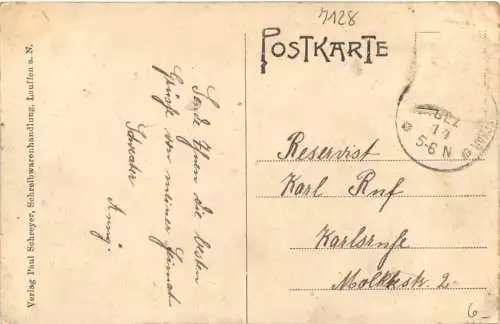 7128
POSTKARTE
DEZ
11
5-6 N
Reservist
Karl Ruf
Karlsruhe
Moltkestr. 2
Sende Ihnen die besten
Grüsse von meiner Heimat
Schwester
6-
Verlag Paul Schreyer, Schreibwarenhandlung, Lauffen a. N.